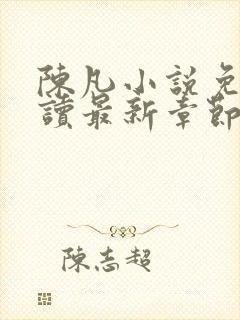 陳凡小説免
讀最新章節
陳志超